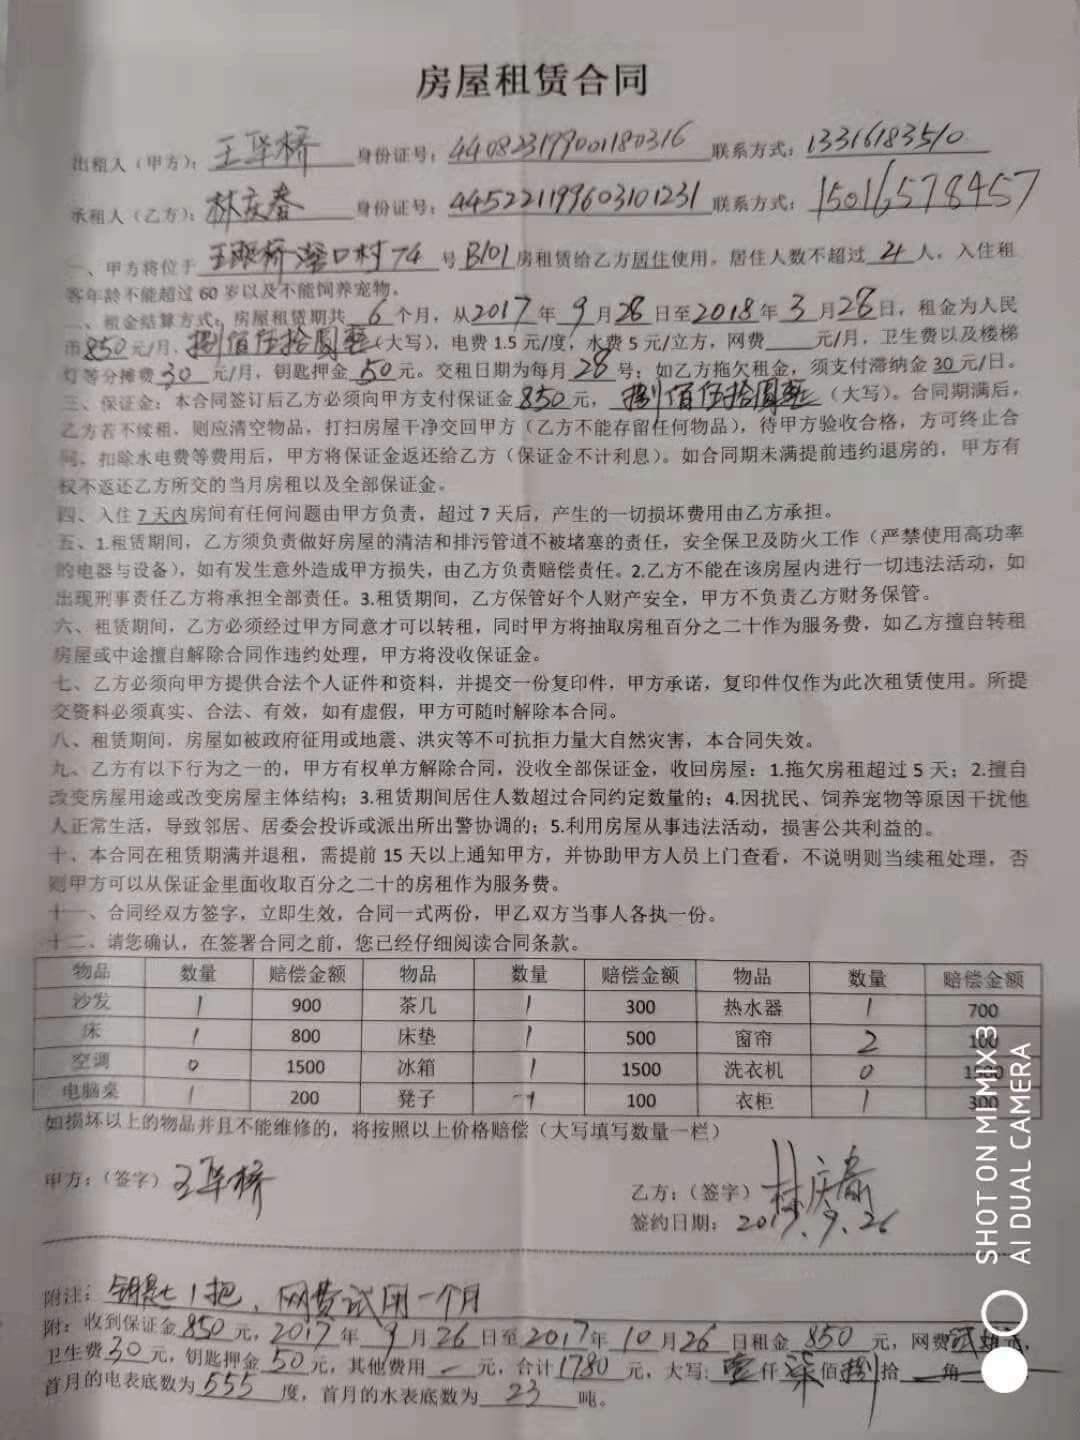 房屋租赁合同
出租人（甲方）：王华桥 身份证号：440823199001180316 联系方式：13316183510
承租人（乙方）：林庆春 身份证号：445221199603101231 联系方式：15016578457
一、甲方将位于 村74 号 B101 房租赁给乙方居住使用。居住人数不超过 4 人，入住租
客年龄不能超过 60 岁以及不能饲养宠物。
二、租金结算方式：房屋租赁期共 6 个月，从2017 年 9 月 28 日至 2018 年 3 月 28 日，租金为人民
币 850 元/月，捌佰伍拾圆整（大写），电费 1.5 元/度，水费 5 元/立方，网费 元/月，卫生费以及楼梯
灯等分摊费 30 元/月，钥匙押金 50 元。交租日期为每月 28 号；如乙方拖欠租金，须支付滞纳金 30 元/日。
三、保证金：本合同签订后乙方必须向甲方支付保证金 850 元，捌佰伍拾圆整（大写）。合同期满后，
乙方若不续租，则应清空物品，打扫房屋干净交回甲方（乙方不能存留任何物品），待甲方验收合格，方可终止合
同，扣除水电费等费用后，甲方将保证金返还给乙方（保证金不计利息）。如合同期未满提前违约退房的，甲方有
权不返还乙方所交的当月房租以及全部保证金。
四、入住 7 天内房间有任何问题由甲方负责，超过 7 天后，产生的一切损坏费用由乙方承担。
五、1.租赁期间，乙方须负责做好房屋的清洁和排污管道不被堵塞的责任，安全保卫及防火工作（严禁使用高功率
的电器与设备），如有发生意外造成甲方损失，由乙方负责赔偿责任。2.乙方不能在该房屋内进行一切违法活动，如
出现刑事责任乙方将承担全部责任。3.租赁期间，乙方保管好个人财产安全，甲方不负责乙方财务保管。
六、租赁期间，乙方必须经过甲方同意才可以转租，同时甲方将抽取房租百分之二十作为服务费，如乙方擅自转租
房屋或中途擅自解除合同作违约处理，甲方将没收保证金。
七、乙方必须向甲方提供合法个人证件和资料，并提交一份复印件，甲方承诺，复印件仅作为此次租赁使用。所提
交资料必须真实、合法、有效，如有虚假，甲方可随时解除本合同。
八、租赁期间，房屋如被政府征用或地震、洪灾等不可抗拒力量大自然灾害，本合同失效。
九、乙方有以下行为之一的，甲方有权单方解除合同，没收全部保证金，收回房屋：1.拖欠房租超过 5 天；2.擅自
改变房屋用途或改变房屋主体结构；3.租赁期间居住人数超过合同约定数量的；4.因扰民、饲养宠物等原因干扰他
人正常生活，导致邻居、居委会投诉或派出所出警协调的；5.利用房屋从事违法活动，损害公共利益的。
十、本合同在租赁期满并退租，需提前 15 天以上通知甲方，并协助甲方人员上门查看，不说明则当续租处理，否
则甲方可以从保证金里面收取百分之二十的房租作为服务费。
十一、合同经双方签字，立即生效，合同一式两份，甲乙双方当事人各执一份。
十二、请您确认，在签署合同之前，您已经仔细阅读合同条款。
物品 数量 赔偿金额 物品 数量 赔偿金额 物品 数量 赔偿金额
沙发 1 900 茶几 1 300 热水器 1 700
床 1 800 床垫 1 500 窗帘 2 100
空调 0 1500 冰箱 1 1500 洗衣机 0 1500
电脑桌 1 200 凳子 1 100 衣柜 1 300
如损坏以上的物品并且不能维修的，将按照以上价格赔偿（大写填写数量一栏）
甲方：（签字）王华桥
乙方：（签字）林庆春
签约日期：2017.9.26
附注：钥匙1把、网费试用一个月
附：收到保证金 850 元，2017 年 9 月 26 日至 2017 年 10 月 26 日租金 850 元，网费
卫生费 30 元，钥匙押金 50 元，其他费用 — 元，合计 1780 元，大写：壹仟 柒 佰 捌 拾 — 角
首月的电表底数为 555 度，首月的水表底数为 23 吨。
SHOT ON MI MIX 3
AI DUAL CAMERA